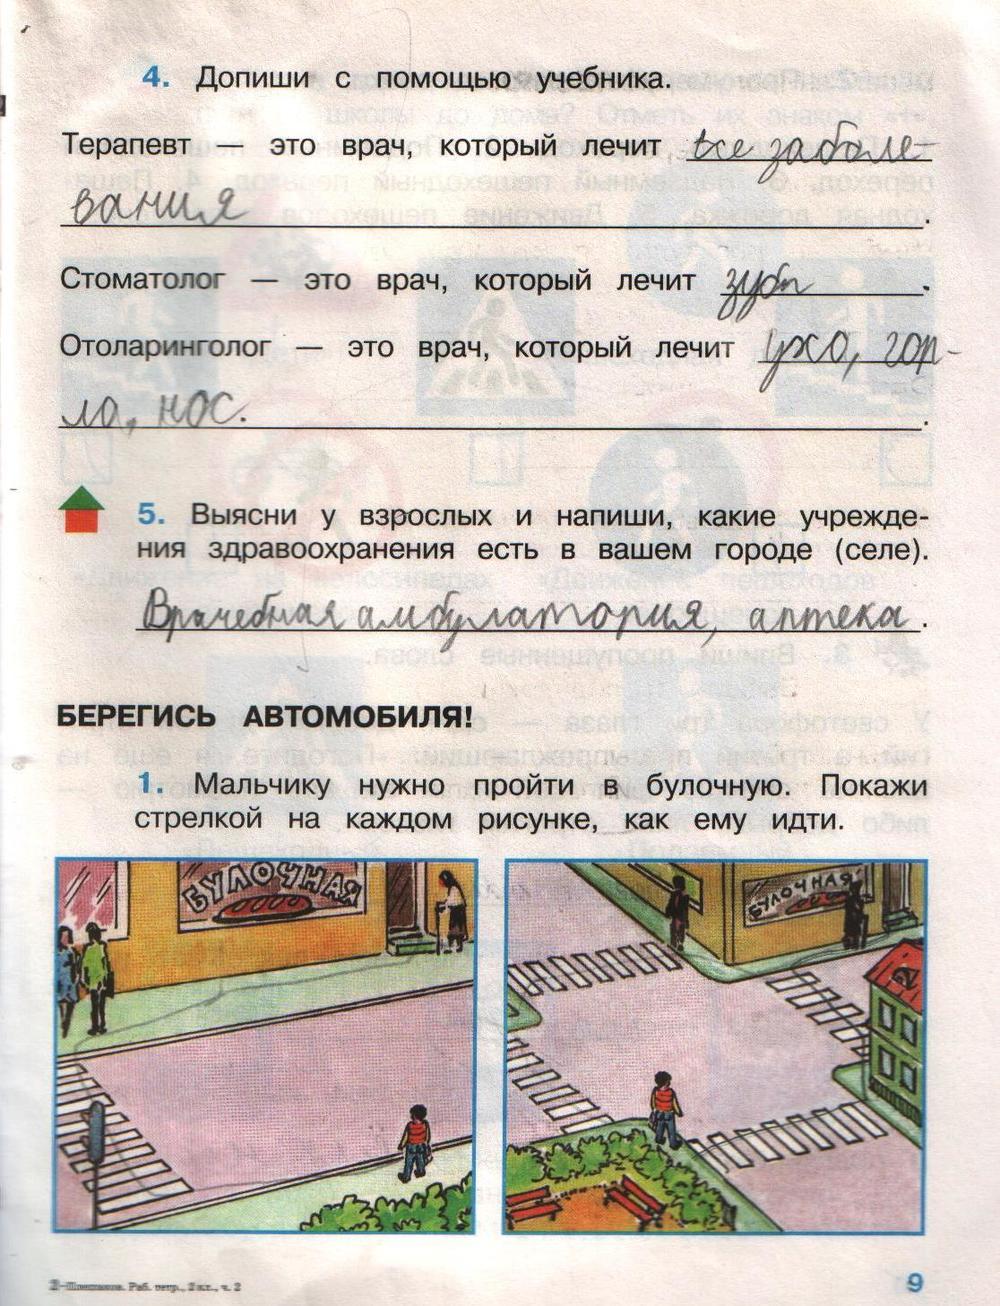 4. Допиши с помощью учебника.
Терапевт — это врач, который лечит все заболе-
вания.
Стоматолог — это врач, который лечит зубы.
Отоларинголог — это врач, который лечит ухо, гор-
ла, нос.
5. Выясни у взрослых и напиши, какие учрежде-
ния здравоохранения есть в вашем городе (селе).
Врачебная амбулатория, аптека.
БЕРЕГИСЬ АВТОМОБИЛЯ!
1. Мальчику нужно пройти в булочную. Покажи
стрелкой на каждом рисунке, как ему идти.
БУЛОЧНАЯ
БУЛОЧНАЯ
2–Плешаков. Раб. тетр., 2 кл., ч. 2
9